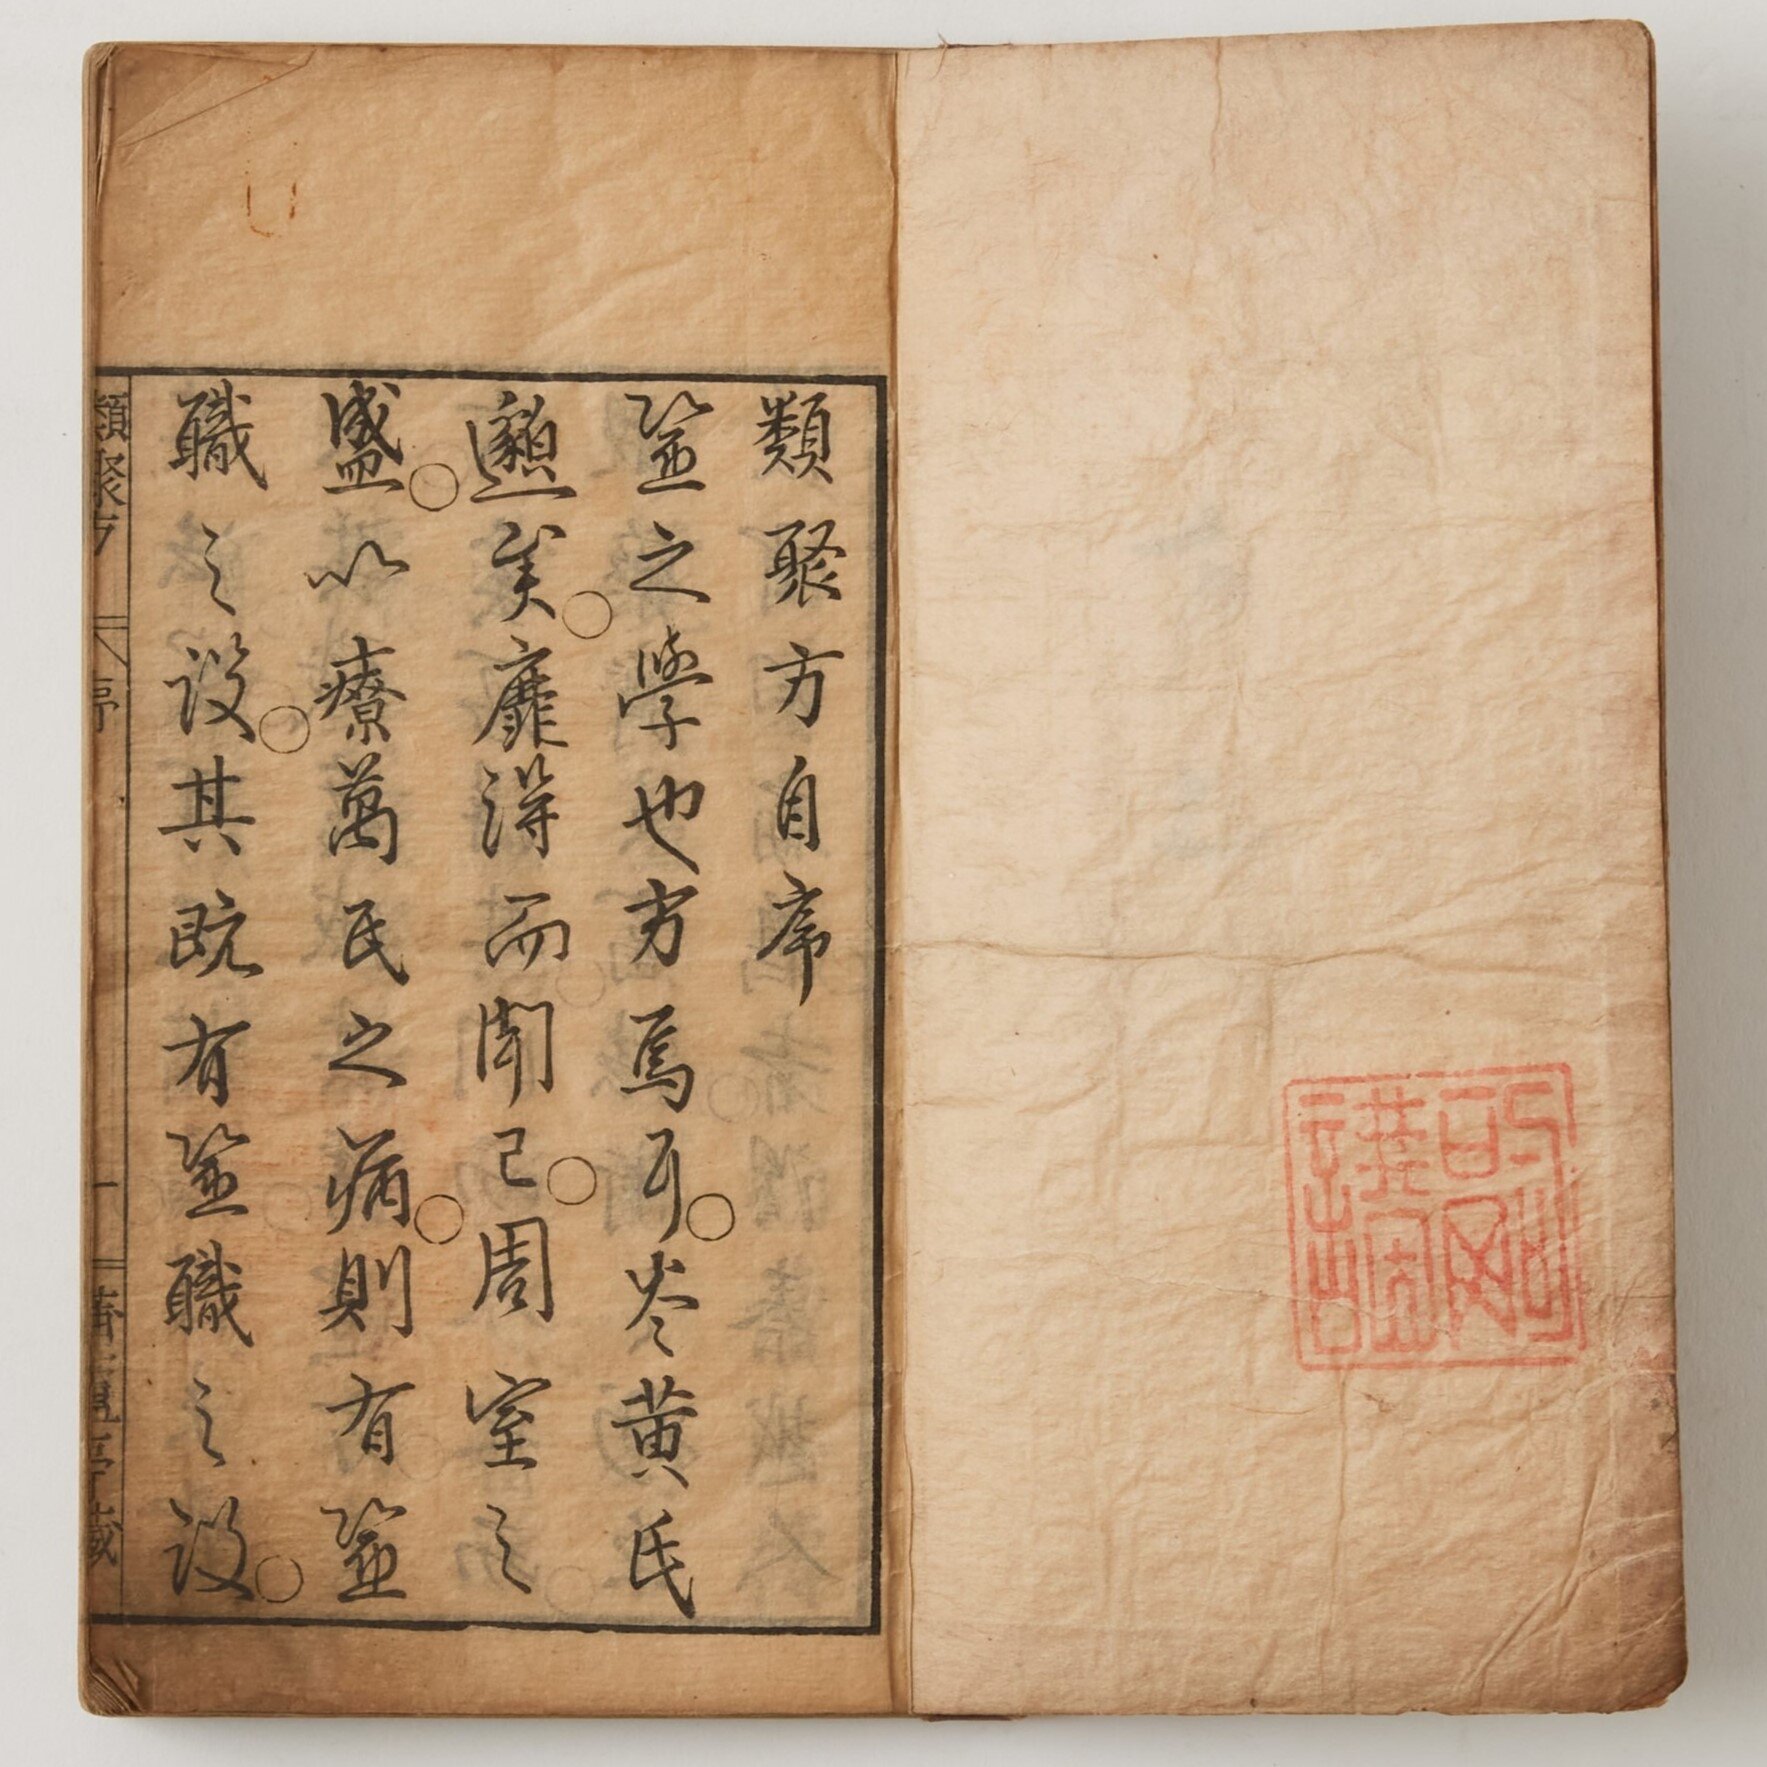 類聚方自序
醫之學也方焉耳。岑黄氏
邈矣。靡得而聞已。周室之
盛。以療萬民之病。則有醫
職之設。其既有醫職之設。
類聚方 序 一